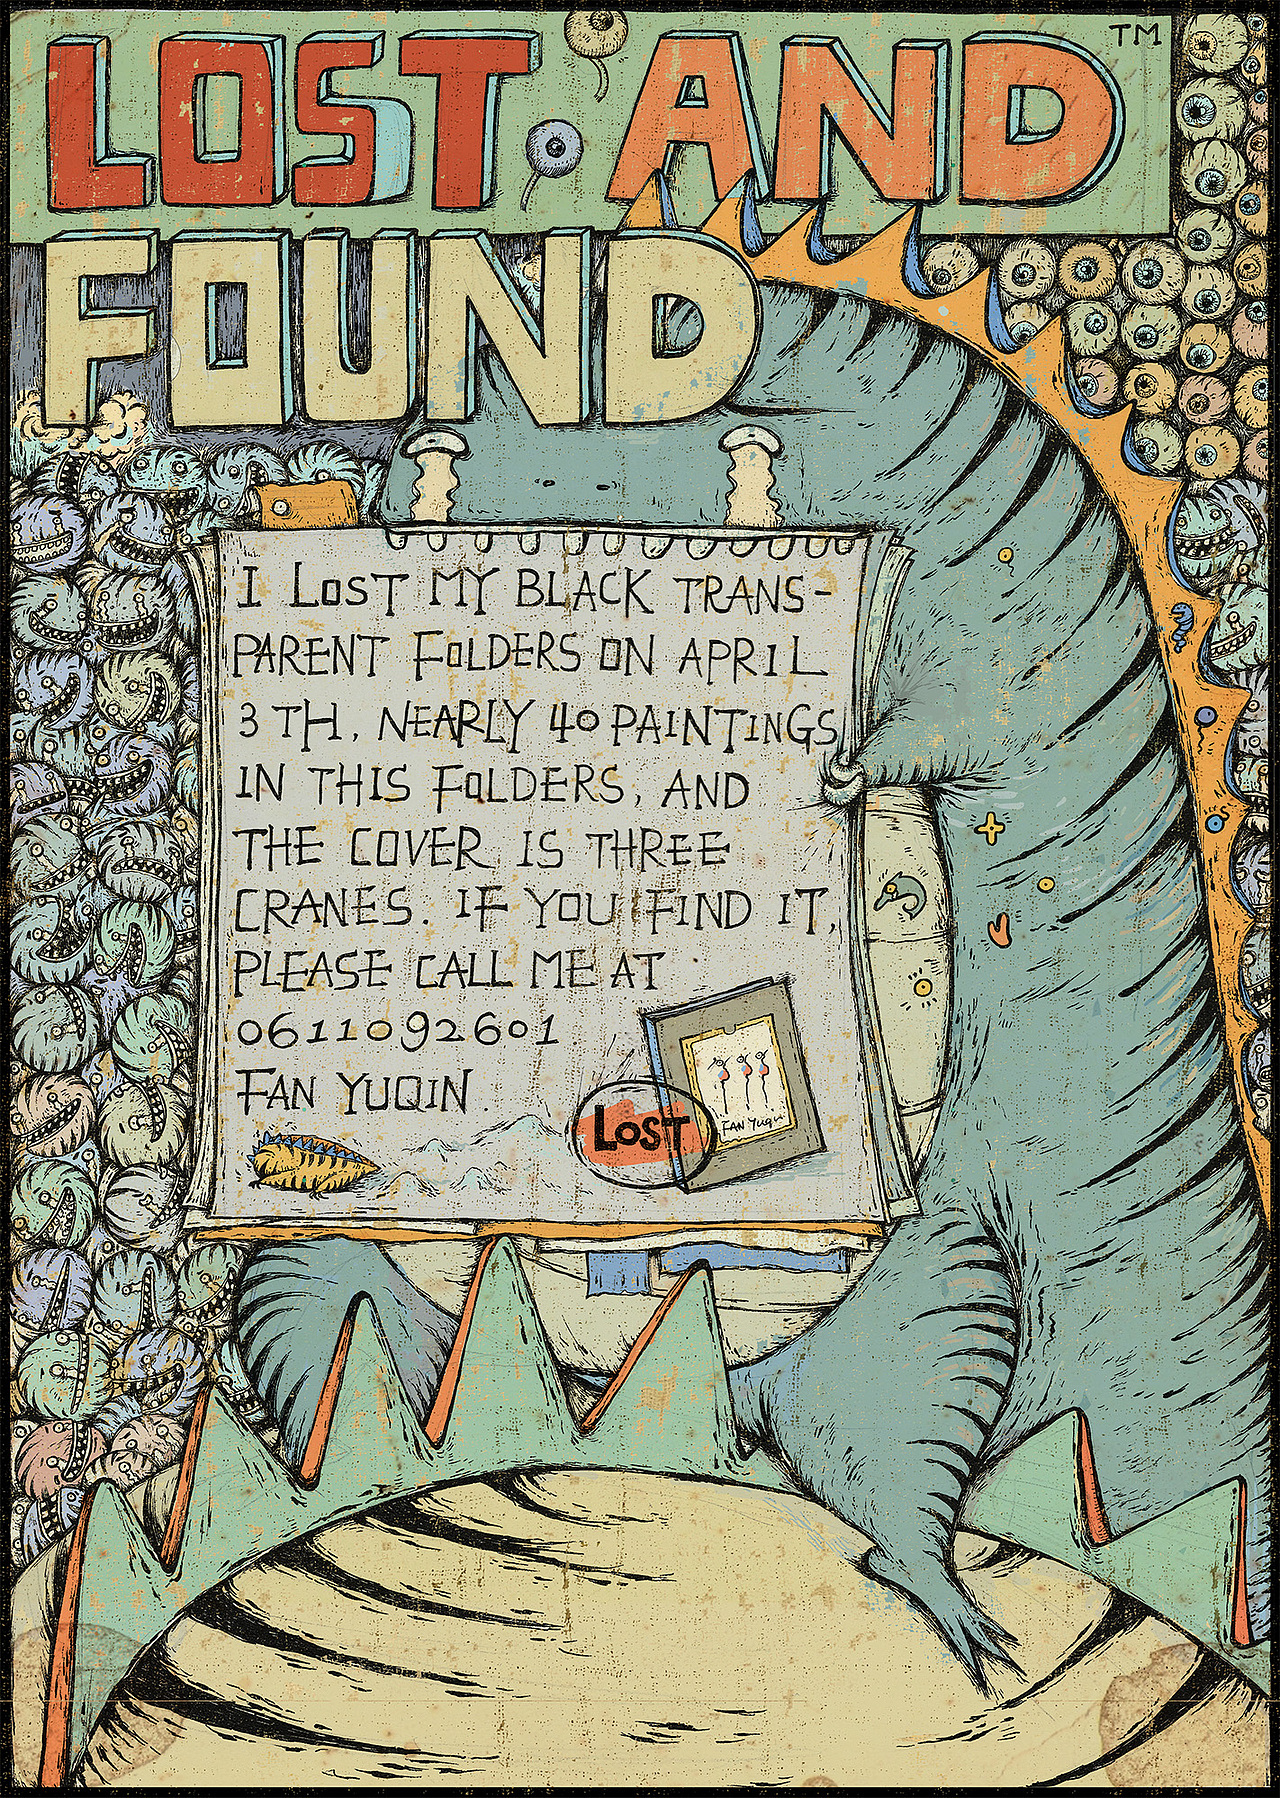 LOST AND
TM
FOUND
I LOST MY BLACK TRANS-
PARENT FOLDERS ON APRIL
3 TH, NEARLY 40 PAINTINGS
IN THIS FOLDERS, AND
THE COVER IS THREE
CRANES. IF YOU FIND IT,
PLEASE CALL ME AT
0611092601
FAN YUQIN.
LOST
FAN YUQIN